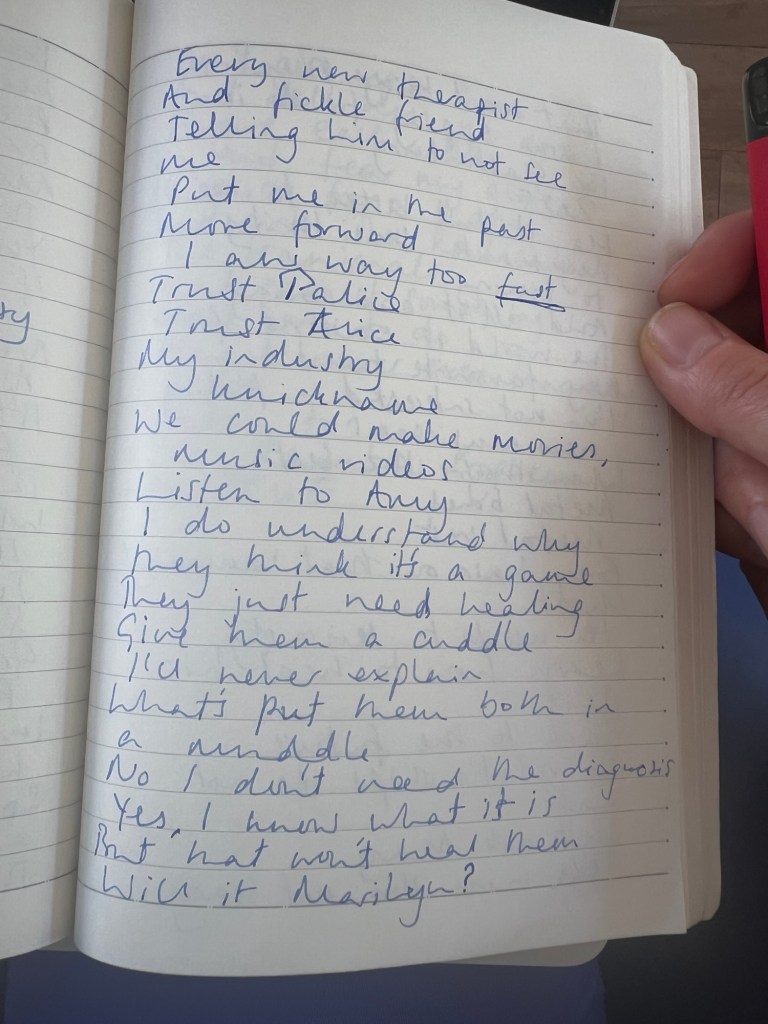 Every new therapist
And fickle friend
Telling him to not see
me
Put me in the past
Move forward
I am way too fast
Trust Palice
Trust Alice
My industry
knickname
We could make movies,
music videos
Listen to Amy
I do understand why
they think it's a game
They just need healing
Give them a cuddle
I'll never explain
What's put them both in
a muddle
No I don't need the diagnosis
Yes, I know what it is
But that won't heal them
Will it Marilyn?